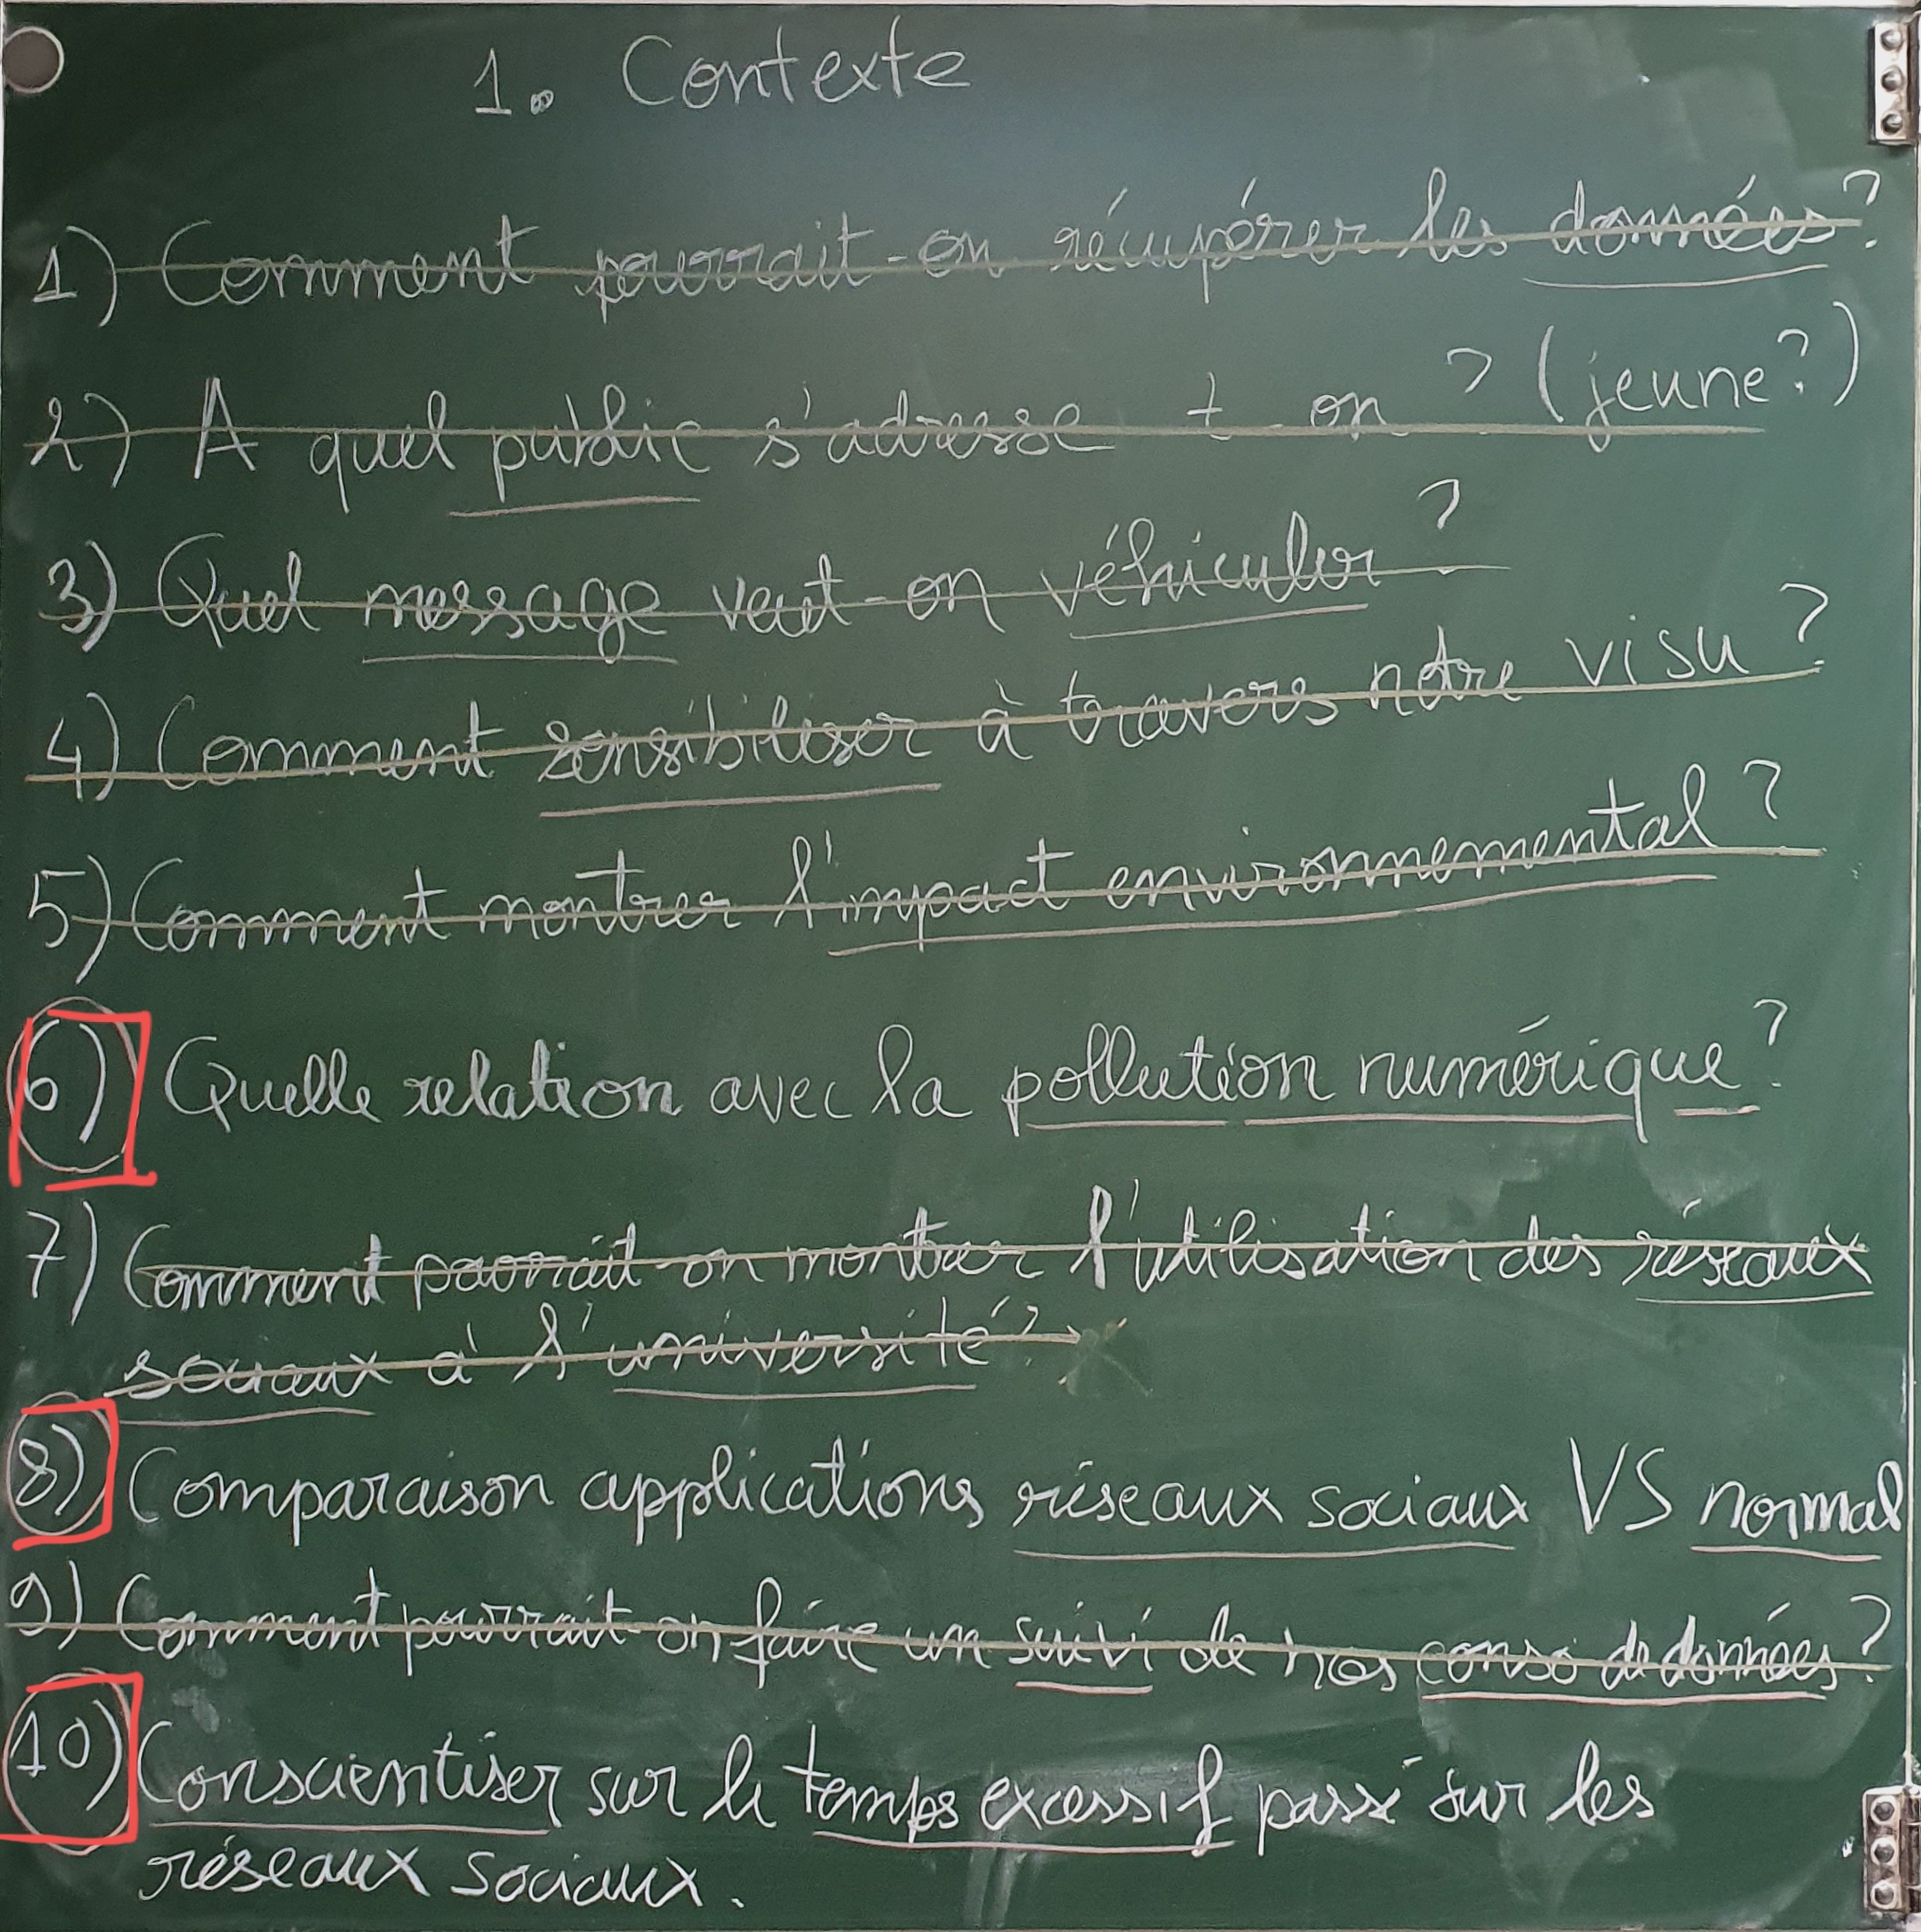 1. Contexte
1) Comment pourrait-on récupérer les données?
2) A quel public s'adresse t-on ? (jeune?)
3) Quel message veut-on véhiculer ?
4) Comment sensibiliser à travers notre visu ?
5) Comment montrer l'impact environnemental ?
6) Quelle relation avec la pollution numérique?
7) Comment pourrait on montrer l'utilisation des réseaux
sociaux à l'université?
8) Comparaison applications réseaux sociaux VS normal
9) Comment pourrait-on faire un suivi de nos conso de données?
10) Conscientiser sur le temps excessif passé sur les
réseaux sociaux.